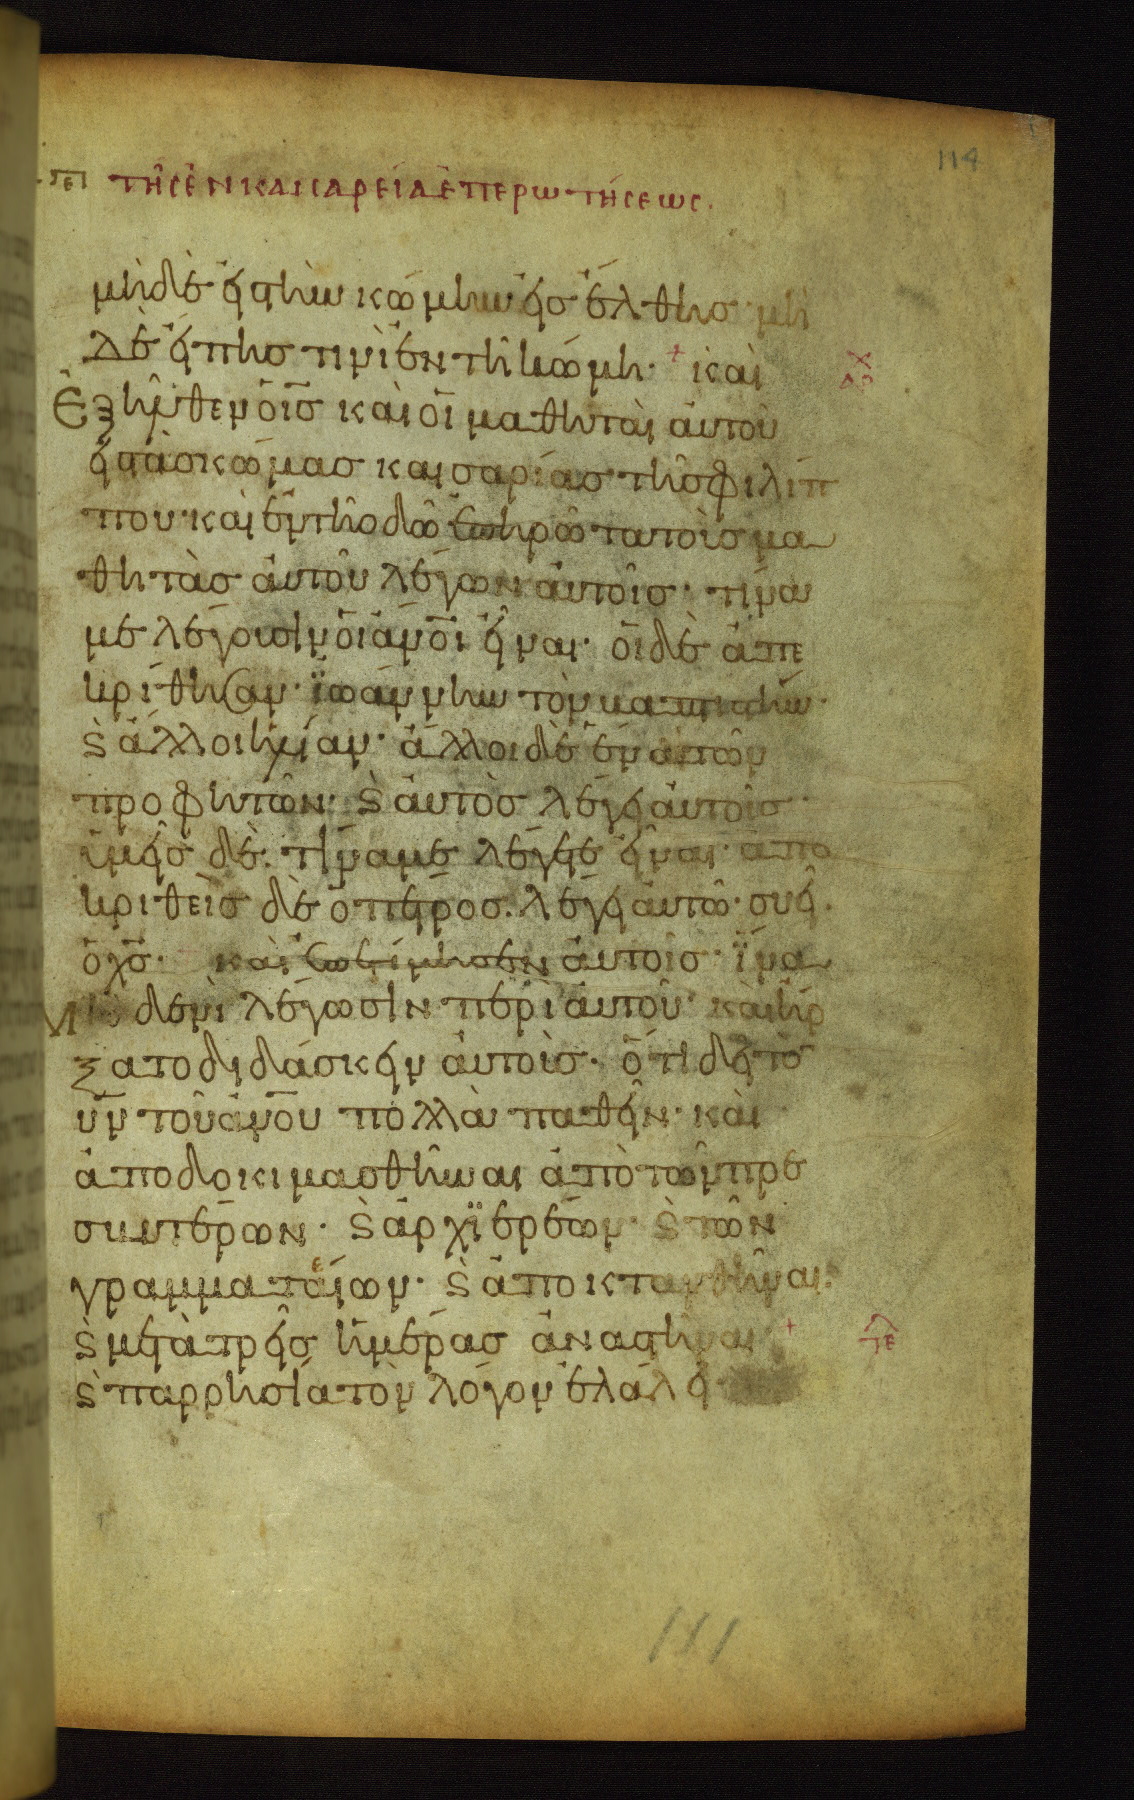 114
πε τῆς ἐν καισαρεία ἐπερωτήσεως.
μὴδὲ εἰς τὴν κώμην εἰσέλθης μὴ
δὲ εἴπης τινὶ ἐν τῆ κώμη· + καὶ
ἐξῆλθεν ὁ ις καὶ οἱ μαθηταὶ αὐτοῦ
εἰς τὰς κώμας καισαρίας τῆς φιλίπ
που· καὶ ἐν τῆ ὁδῶ ἐπηρώτα τοὺς μα
θητὰς αὐτοῦ λέγων αὐτοῖς· τίνα
με λέγουσιν οἱ ανοι εἶναι· οἱ δὲ ἀπε
κρίθησαν· ἰωάννην τὸν βαπτιστὴν·
ϗ ἄλλοι ἠλίαν· ἄλλοι δὲ ἕνα τῶν
προφητῶν· ϗ αὐτὸς λέγει αὐτοῖς·
ὑμεῖς δὲ· τίνα με λέγετε εἶναι· ἀπο
κριθεὶς δὲ ὁ πέτρος· λέγει αὐτῶ· σὺ εἶ
ὁ χς· καὶ ἐπετίμησεν αὐτοῖς· ἵνα
μηδενὶ λέγωσιν περὶ αὐτοῦ· καὶ ἤρ
ξατο διδάσκειν αὐτοὺς· ὅτι δεῖ τὸν
υν τοῦ ανου πολλὰ παθεῖν· καὶ
ἀποδοκιμασθῆναι ἀπὸ τῶν πρε
σβυτέρων· ϗ ἀρχϊερέων· ϗ τῶν
γραμματαίων· ϗ ἀποκτανθῆναι·
ϗ μετὰ τρεῖς ἡμέρας ἀναστῆναι· + τε
ϗ παρρησία τὸν λόγον ἐλάλει·
111